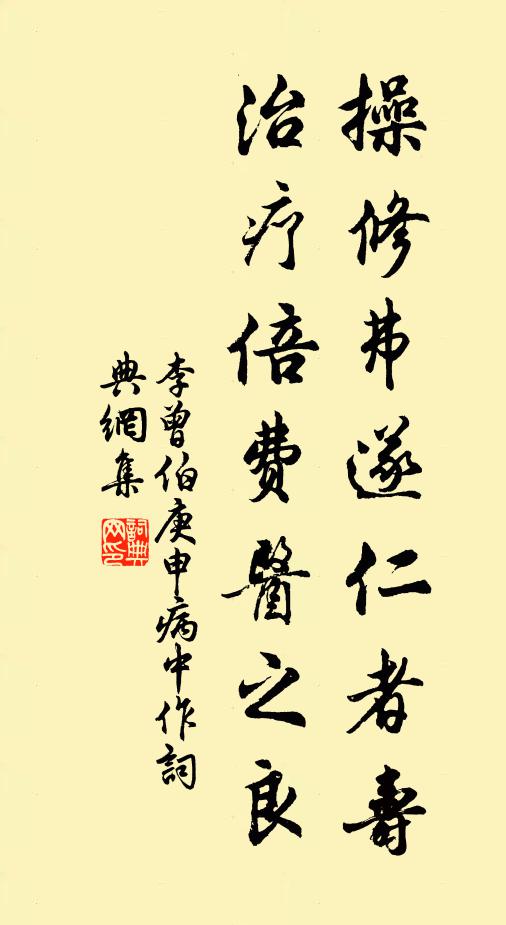 操修弗遂仁者壽
治疗倍費醫之良
李曾伯庚申病中作詞
典網集
詞典網印